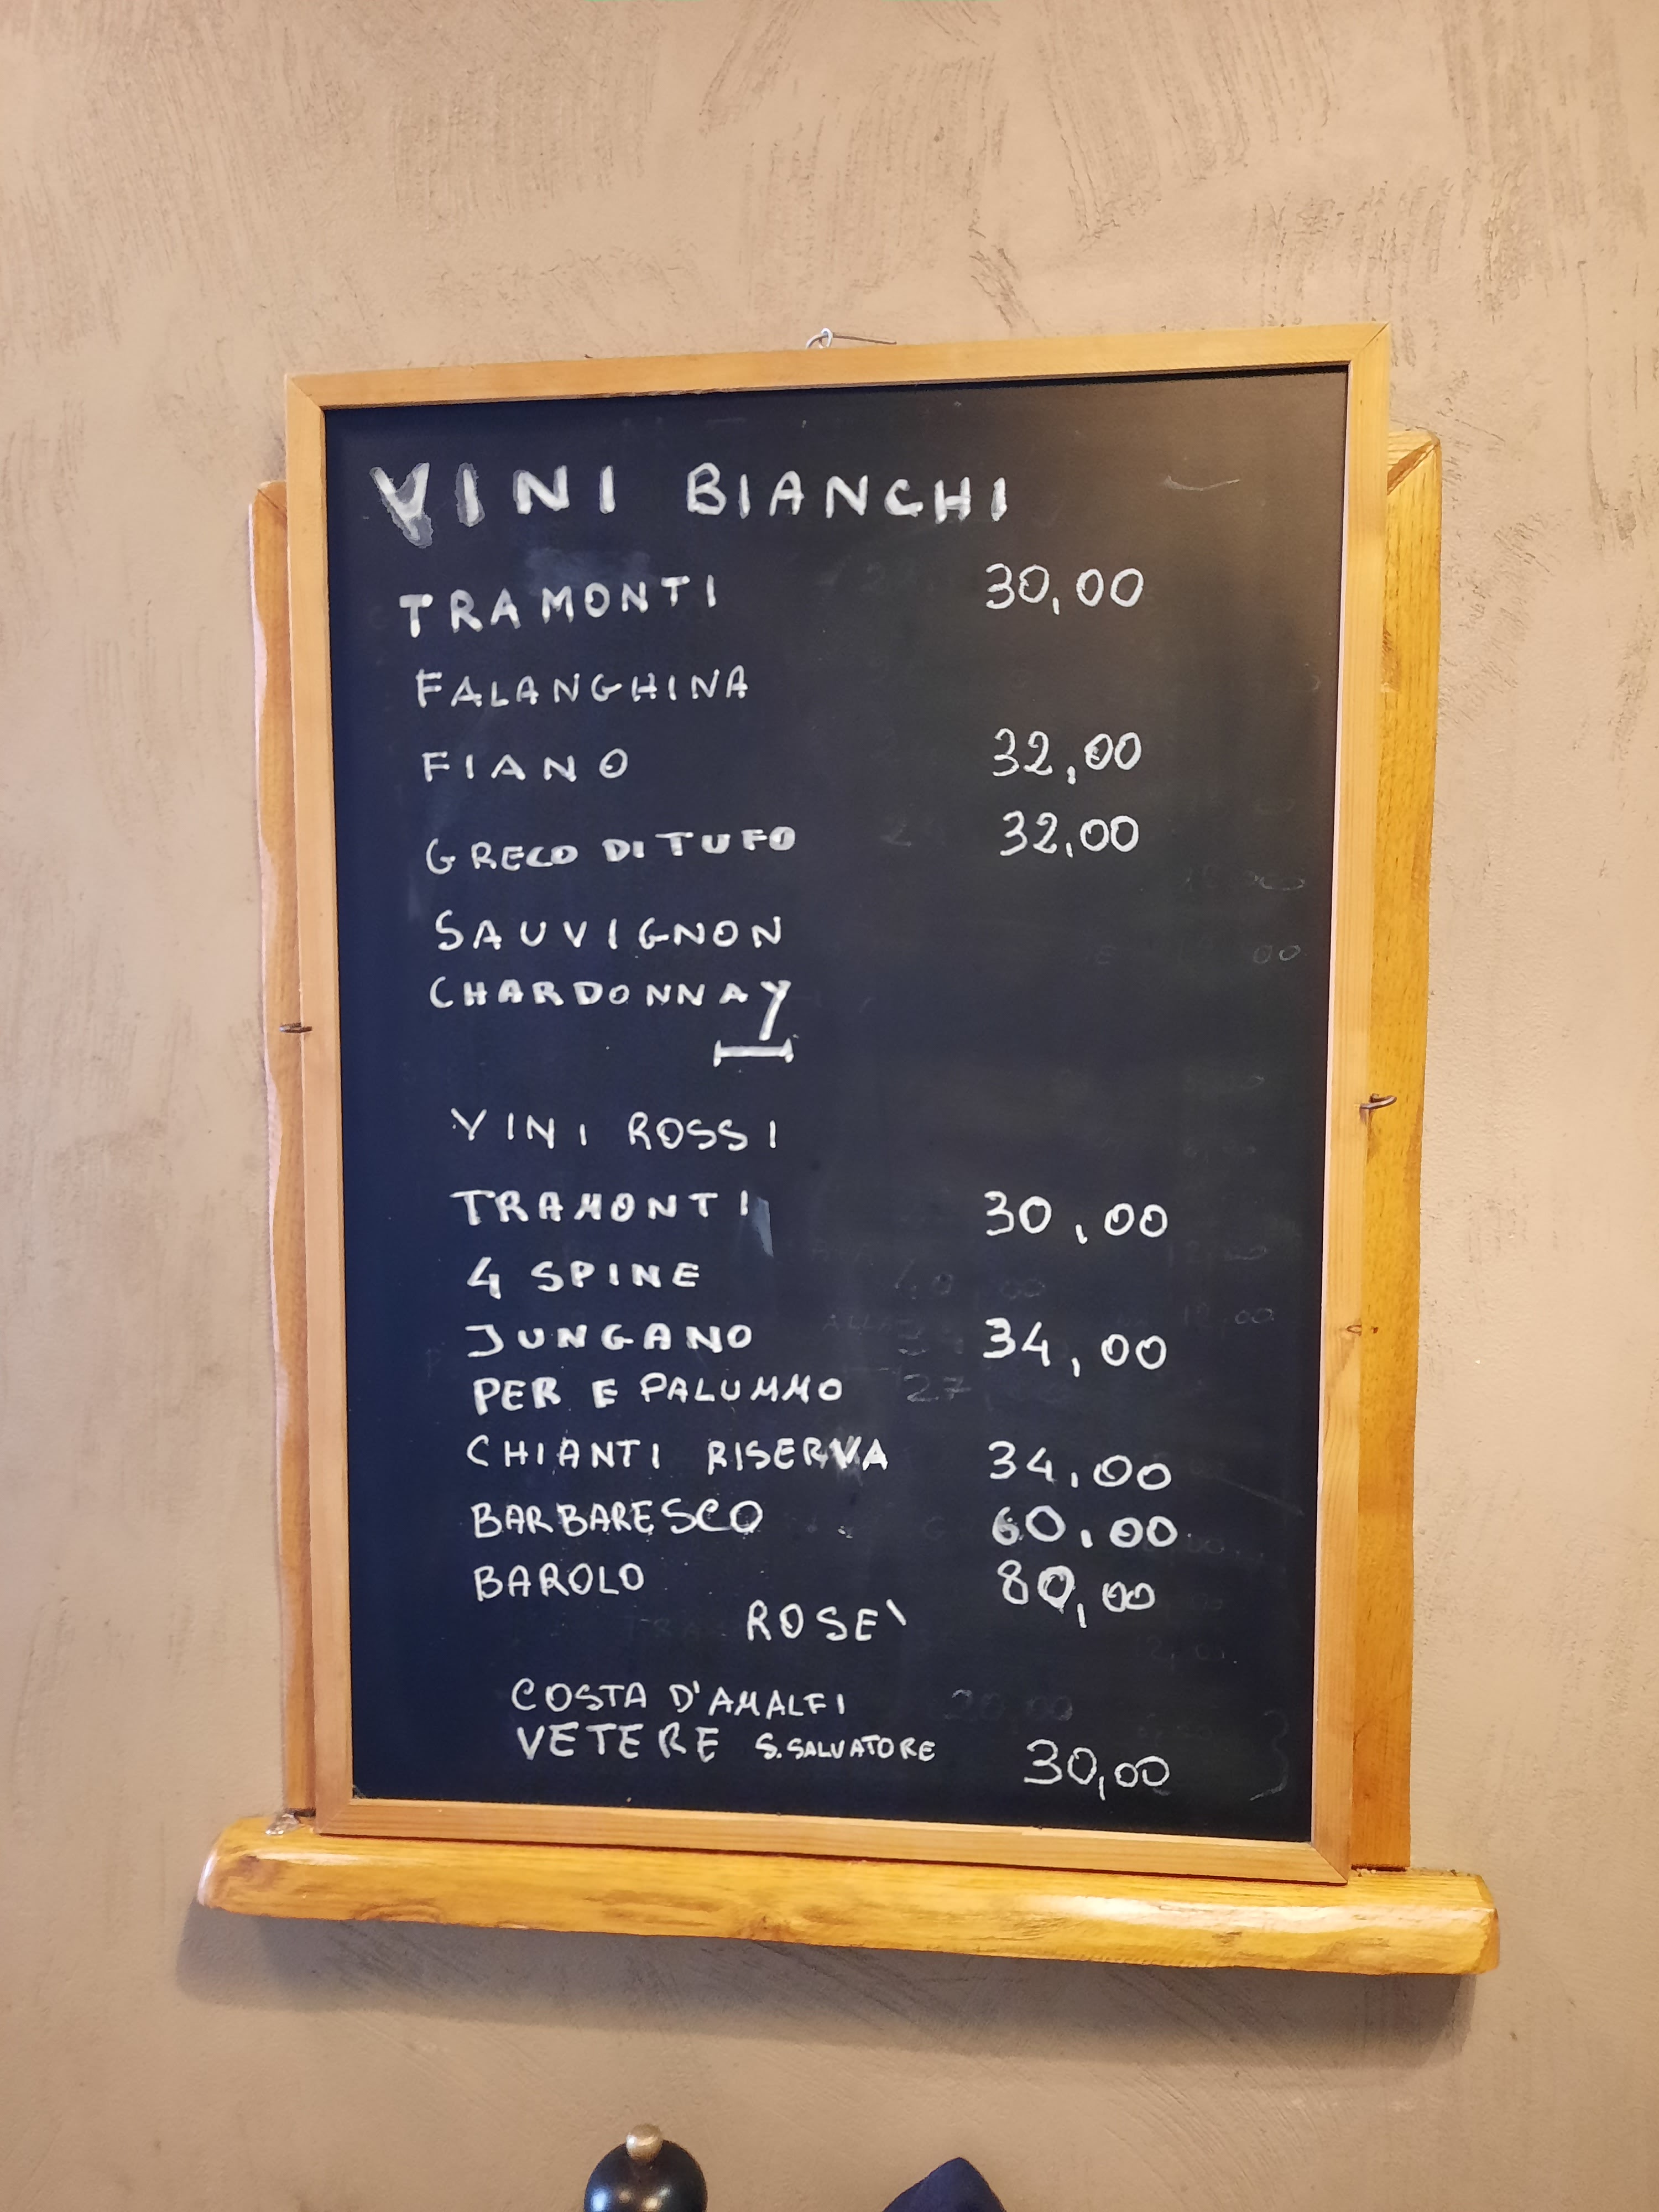 VINI BIANCHI
TRAMONTI 30,00
FALANGHINA
FIANO 32,00
GRECO DI TUFO 32,00
SAUVIGNON
CHARDONNAY
VINI ROSSI
TRAMONTI 30,00
4 SPINE
JUNGANO 34,00
PER E PALUMMO
CHIANTI RISERVA 34,00
BARBARESCO 60,00
BAROLO 80,00
ROSE'
COSTA D'AMALFI
VETERE S.SALVATORE 30,00